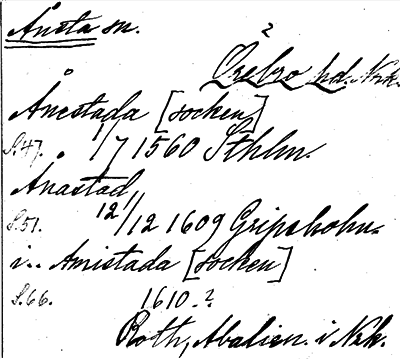 Ånsta sn.
2
Örebro hd. Nrk.
Ånestada [socken]
S.47. 1/7 1560 Sthlm.
Ånastad
S.51. 12/12 1609 Gripsholm
i.. Amistada [socken]
S.66. 1610.?
Roth, Abalien. i Nrk.